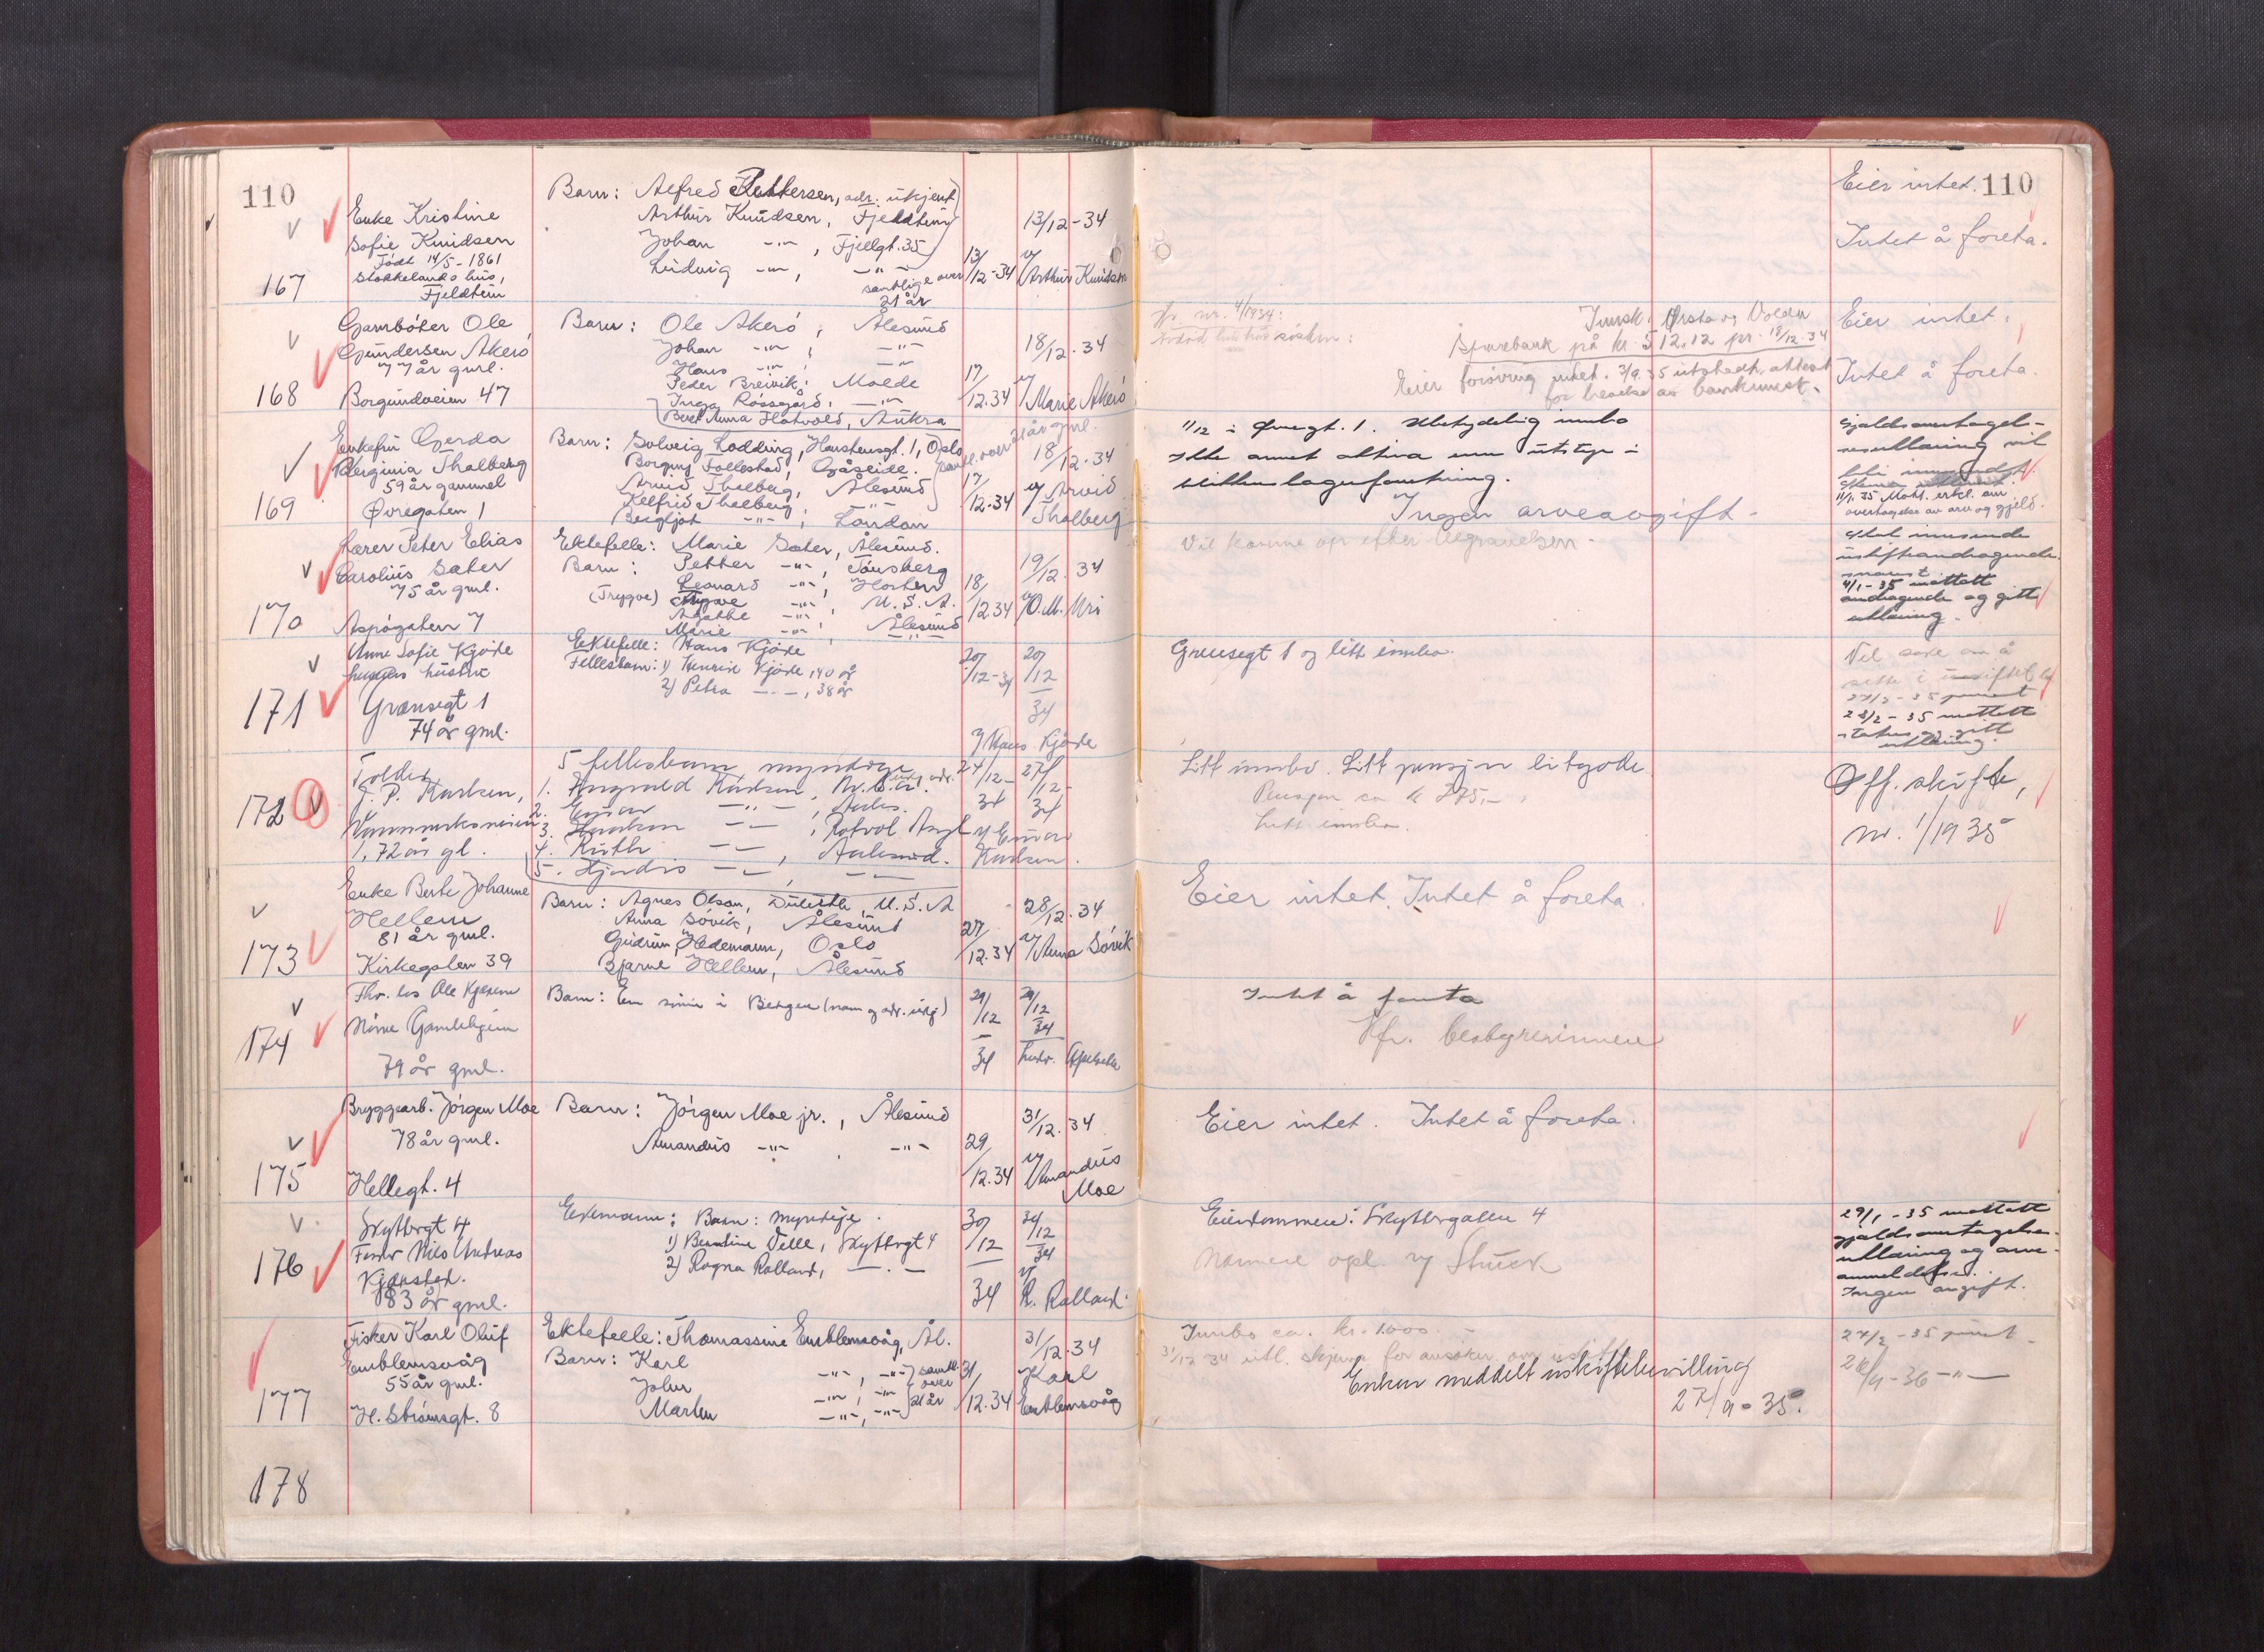 110
Enke Kristine
Sofie Knudsen
Født 14/5-1861
Stokkelands hus,
Fjeldheim
167
Barn: Alfred Pettersen, adr. ukjent
Arthur Knudsen, Fjeldheim
Johan -"- , Fjellgt. 35
Ludvig -"- , -"-
samtlige over
21 år
13/12-34
13/12-34
v/ Arthur Knudsen
Gambøter Ole
Gundersen Akerö
77 år gml.
168 Borgundveien 47
Barn: Ole Akerö, Ålesund
Johan -"- , -"-
Hans -"- , -"-
Peder Breivik, Molde
Inga Rössgård, -"-
Berit Anna Hatvold, Aukra
17/12.34
18/12.34
v/ Marie Akerö
Enkefru Gerda
Berginia Thalberg
59 år gammel
169 Øvregaten 1
Barn: Solveig Lodding, Hanstensgt. 1, Oslo
Borgny Follestad, Gåseide.
Arvid Thalberg, Ålesund
Kelfrid Thalberg, -"-
Bergljot -"- , London
samtl. over 21 år gml.
17/12-34
18/12.34
v/ Arvid
Thalberg
Lærer Peter Elias
Carolius Sæter
75 år gml.
170 Aspøgaten 7
Ektefelle: Marie Sæter, Ålesund.
Barn: Petter -"- , Tönsberg
Leonard -"- , Horten
(Trygve) Trygve -"- , U.S.A.
Agathe -"- , Ålesund
Marie -"- , -"-
18/12.34
19/12.34
v/ O.M. Uri
Anne Sofie Kjøde
hustru
171 Grensegt 1
74 år gml.
Ektefelle: Hans Kjöde
Fellesbarn: 1) Henrik Kjøde, 40 år
2) Petra -"- , 38 år
20/12-34
20/12 34
v/ Hans Kjøde
Toller
J. P. Karlsen,
172
1, 72 år gl.
5 fellesbarn myndige
1. Ingvald Karlsen, ukj. adr.
2. Einar -"- , Aales.
3. Haakon -"- , Rotvol Asyl
4. Ruth -"- , Aalesund.
5. Hjørdis -"- , -"-
24/12-34
27/12-34
v/ Einar
Karlsen.
Enke Berte Johanne
Hellem
81 år gml.
173 Kirkegaten 39
Barn: Agnes Olson, Duluth, U.S.A
Anna Sövik, Ålesund
Gudrun Hedemann, Oslo
Bjarne Hellem, Ålesund
27/12.34
28/12.34
v/ Anna Sövik
Fhv. los Ole Kjærem
174 Nörve Gamlehjem
79 år gml.
Barn: En sønn i Bergen (navn og adr. ukj)
29/12 34
29/12 34
Bryggearb. Jörgen Moe
78 år gml.
175 Hellegt. 4
Barn: Jörgen Moe jr., Ålesund
Amandus -"- , -"-
29/12.34
31/12.34
v/ Amandus
Moe
Skyttergt 4
176 Nils Andreas
Kjønstad.
83 år gml.
Enkemann: Barn: myndige.
1) Berntine Velle, Skyttergt 4
2) Ragna Rolland, -"-
30/12 34
31/12 34
v/ R. Rolland.
Fisker Karl Oluf
Emblemsvåg
55 år gml.
177 H. Strömsgt. 8
Ektefelle: Thomassine Emblemsvåg, Ål.
Barn: Karl -"- , -"-
John -"- , -"-
Marten -"- , -"-
samtl. over 21 år
31/12.34
31/12.34
Karl
Emblemsvåg
178
110
Eier intet.
Intet å foreta.
nr. 4/1934:
Innsk. i Ørsta og Volda
Sparebank på kr. 512,12 pr. 18/12-34
Eier forøvrig intet. 3/9.35 utstedt attest
for hevelse av bankinnsk.
Eier intet.
Intet å foreta.
11/12 i Øvregt. 1. Ubetydelig innbo
Ikke annet aktiva enn utstyr i
Ingen arveavgift.
Vil komme op efter begravelsen
Gjeldsovertagelseserklæring vil
bli innsendt.
11/1 35 Mott. erkl. om
overtagelse av arv og gjeld.
Skal innsende
uskifteandragende
snarest.
4/1-35 mottatt
andragende og gitt
erklæring.
Grensegt 1 og litt innbo.
Vil søke om å
sitte i uskiftet bo
27/2-35 purret
28/2-35 mottatt
status og gitt
erklæring.
Litt innbo. Litt pensjon tilgode
Pensjon ca kr 275,-
Litt innbo.
Off. skifte,
nr. 1/1935
Eier intet. Intet å foreta.
Intet å foreta
Kfr. bestyrerinnen
Eier intet. Intet å foreta.
Eiendommen: Skyttergaten 4
Nærmere opl. v/ Stueck
29/1-35 mottatt
gjeldsovertagelseserklæring og arveanmeldelse.
Ingen avgift.
Innbo ca. kr. 1.000.-
31/12 34 utl. skjema for ansøkn. om uskifte
Enken meddelt uskiftebevilling
27/9-35.
27/2-35 purret